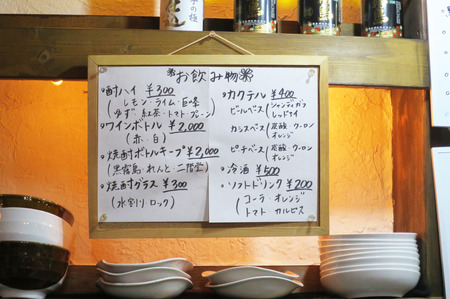 *お飲み物*
・酎ハイ ¥300
(レモン・ライム・巨峰
ゆず 紅茶・トマト プレーン)
・ワインボトル ¥2,000
(赤・白)
・焼酎ボトルキープ ¥2,000
(黒霧島 れんと 二階堂)
・焼酎グラス ¥300
(水割り ロック)
・カクテル ¥400
ビールベース(シャンディガフ
レッドアイ
カシスベース(炭酸・ウーロン
オレンジ
ピーチベース(炭酸・ウーロン
オレンジ
・冷酒 ¥500
・ソフトドリンク ¥200
(コーラ・オレンジ
トマト カルピス)